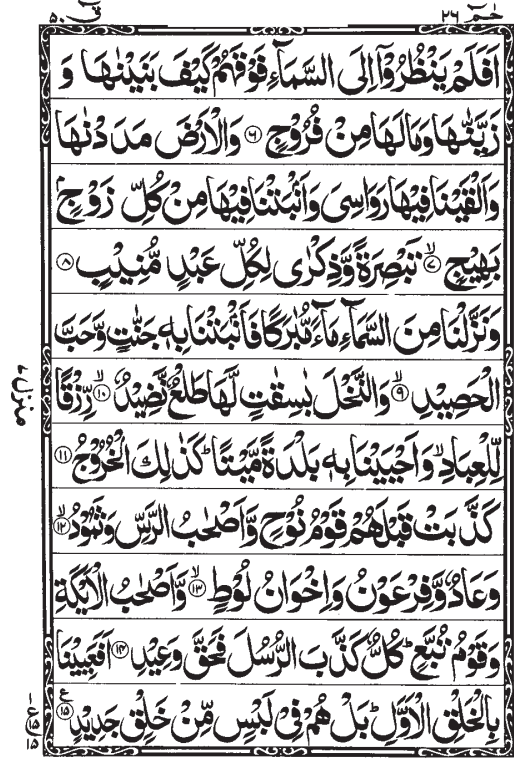 حٰمٓ ٢٦ قٓ ٥٠
اَفَلَمْ یَنْظُرُوْۤا اِلَی السَّمَآءِ فَوْقَهُمْ كَیْفَ بَنَیْنٰهَا وَ
زَیَّنّٰهَا وَمَا لَهَا مِنْ فُرُوْجٍ ﴿۶﴾ وَالْاَرْضَ مَدَدْنٰهَا
وَاَلْقَیْنَا فِیْهَا رَوَاسِیَ وَاَنْۢبَتْنَا فِیْهَا مِنْ كُلِّ زَوْجٍۭ
بَهِیْجٍ ﴿۷﴾ۙ تَبْصِرَةً وَّذِكْرٰی لِكُلِّ عَبْدٍ مُّنِیْبٍ ﴿۸﴾
وَنَزَّلْنَا مِنَ السَّمَآءِ مَآءً مُّبٰرَكًا فَاَنْۢبَتْنَا بِهٖ جَنّٰتٍ وَّحَبَّ
الْحَصِیْدِ ﴿۹﴾ۙ وَالنَّخْلَ بٰسِقٰتٍ لَّهَا طَلْعٌ نَّضِیْدٌ ﴿۱۰﴾ۙ رِّزْقًا
لِّلْعِبَادِۙ وَاَحْیَیْنَا بِهٖ بَلْدَةً مَّیْتًاؕ كَذٰلِكَ الْخُرُوْجُ ﴿۱۱﴾
كَذَّبَتْ قَبْلَهُمْ قَوْمُ نُوْحٍ وَّاَصْحٰبُ الرَّسِّ وَثَمُوْدُ ﴿۱۲﴾ۙ
وَعَادٌ وَّفِرْعَوْنُ وَاِخْوَانُ لُوْطٍ ﴿۱۳﴾ۙ وَّاَصْحٰبُ الْاَیْكَةِ
وَقَوْمُ تُبَّعٍؕ كُلٌّ كَذَّبَ الرُّسُلَ فَحَقَّ وَعِیْدِ ﴿۱۴﴾ اَفَعَیِیْنَا
بِالْخَلْقِ الْاَوَّلِؕ بَلْ هُمْ فِیْ لَبْسٍ مِّنْ خَلْقٍ جَدِیْدٍ ﴿۱۵﴾ع
منزل ٧
ع ١٥ ١٥